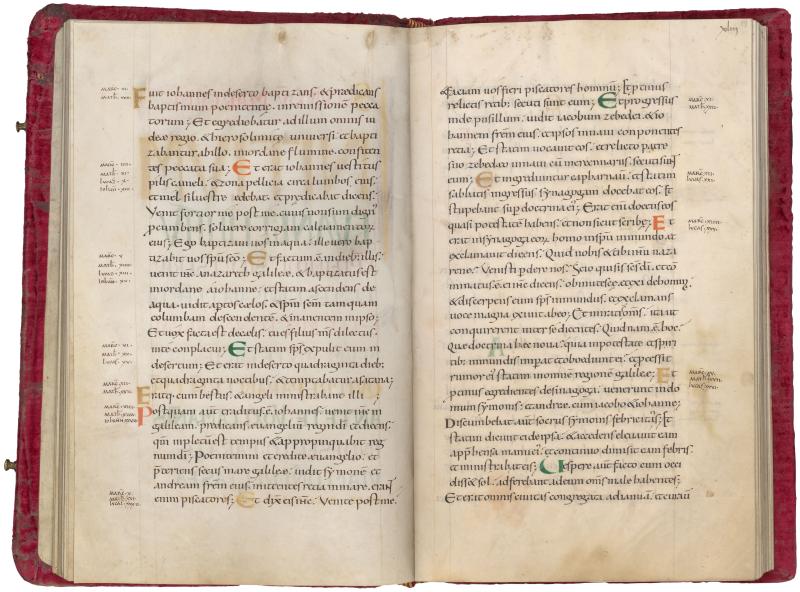 Fuit iohannes in deserto baptizans, & prædicans
baptismum poenitentiæ. in remissionē pecca
torum; Et egrediebatur ad illum omnis iu
deæ regio, & hierosolimitæ universi. et bapti
zabantur ab illo. in iordane flumine. confiten
tes peccata sua; Et erat iohannes vestitus
pilis cameli. & zona pellicia circa lumbos eius.
et mel silvestre ædebat. et prædicabat dicens.
Venit fortior me post me. cuius non sum dignus
procumbens. solvere corrigiam calciamentor
eius; Ego baptizavi vos in aqua. ille vero bap
tizabit vos spū scō; Et factum ē. in dieb; illis.
venit ihs. a nazareth galileæ. & baptizatus est
in iordane a iohanne; Et statim ascendens de
aqua. vidit aptos cælos. & spm scm tamquam
columbam descendentē. & manentem in ipso;
Et vox facta est de cælis. tu es filius ms dilectus.
in te conplacui; Et statim sps expulit eum in
desertum; Et erat in deserto quadraginta dieb;
et quadraginta noctibus. & temptabatur a satana;
eratq; cum bestiis. & angeli ministrabant illi
Postquam aut traditus ē. iohannes. venit ihs in
galileam. predicans. evangelium regni dī. et dicens.
qm impletū est tempus & appropinquabit reg
num dī; Poenitemini et credite ævangelio. et
præteriens secus mare galileæ. vidit symonē et
andream frēm eius. mittentes recia in mare. erant
enim piscatores; Et dixit eis ihc. Venite post me.
& faciam vos fieri piscatores hominū; Et ptinus
relictis retib; secuti sunt eum; Et progressus
inde pusillum. vidit iacobum zebedei. & io
hannem frēm eius. et ipsos in navi conponentes
recia; Et statim vocavit eos. et relicto patre
suo zebedeo in navi cū mercennariis. secuti sunt
eum; Et ingrediuntur capharnaū. et statim
sabbatis ingressus synagogam docebat eos. Et
stupebant sup doctrina eī; Erat enī docens eos
quasi potestatē habens. et non sicut scribę; Et
erat in synagoga eor. homo in spū inmundo. et
exclamavit dicens. Quid nobis & tibi ihu naza
rene? Venisti pdere nos? Scio qui sis scs dī. et cō
minatus ē. ei ihc dicens. obmutesce. et exi de homine
& discerpens eum sps inmundus. et exclamans
voce magna exivit ab eo; Et mirati sī omīs. ita ut
conquirerent inter se dicentes. Quid nam ē. hoc?
Quę doctrina hęc nova? quia in potestate et spiri
tib; inmundis impat et oboediunt ei; et pcessit
rumor eī statim in omnē regionē galileę; Et
ptinus egredientes de sinagoga. venerunt in do
mum symonis. et andreæ. cum iacobo & iohanne;
Discumbebat aut socrus symonis febricitās; Et
statim dicunt ei de ipsa. & accedens elevavit eam
apphensa manu eī. et continuo dimisit eam febris.
et ministrabat eis; Vespere aut facto cum occi
disset sol. adferebant ad eum omīs male habentes;
Et erat omnis civitas congregata ad ianuā. et curavi